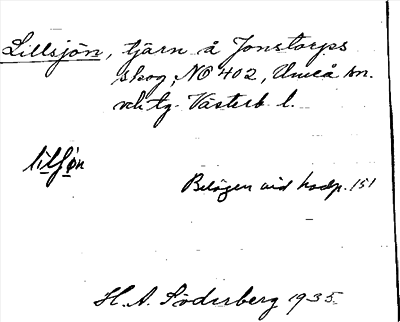 Lillsjön, tjärn å Jonstorps
skog, NO 402, Umeå sn.
o. tg. Västerb l.
lilʃøn
Belägen vid hödp. 151
H. A. Söderberg 1935